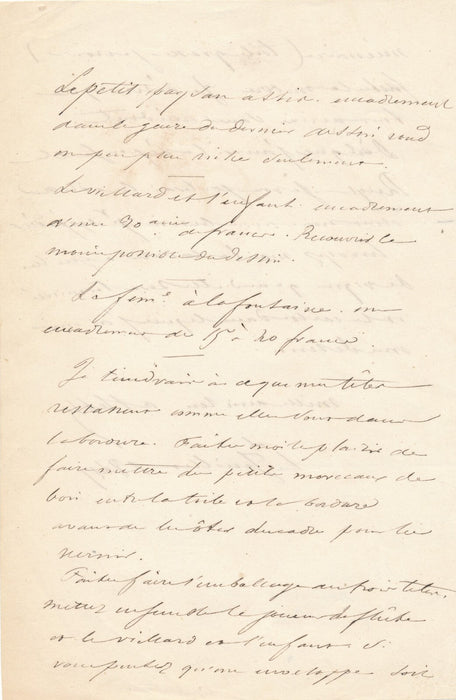 Le petit paysan assis. encadrement
dans le genre du dernier dessin rond
un peu plus riche seulement.
Le vieillard et l'enfant. encadrement
de francs. Recouvrir le
moins possible du dessin.
La fem.e à la fontaine. un
encadremen de 15 à 20 francs
Je tiendrais à ce que mes têtes
restassent comme elles sont dans
la bordure. Faites moi le plaisir de
faire mettre de petits morceaux de
bois entre la toile et la bordure
avant de les ôter du cadre pour les
vernir.
Faites faire l'emballage des trois têtes.
mettez ensemble le joueur de flûte
et le vieillard et l'enfant si
vous pensez qu'une enveloppe soit